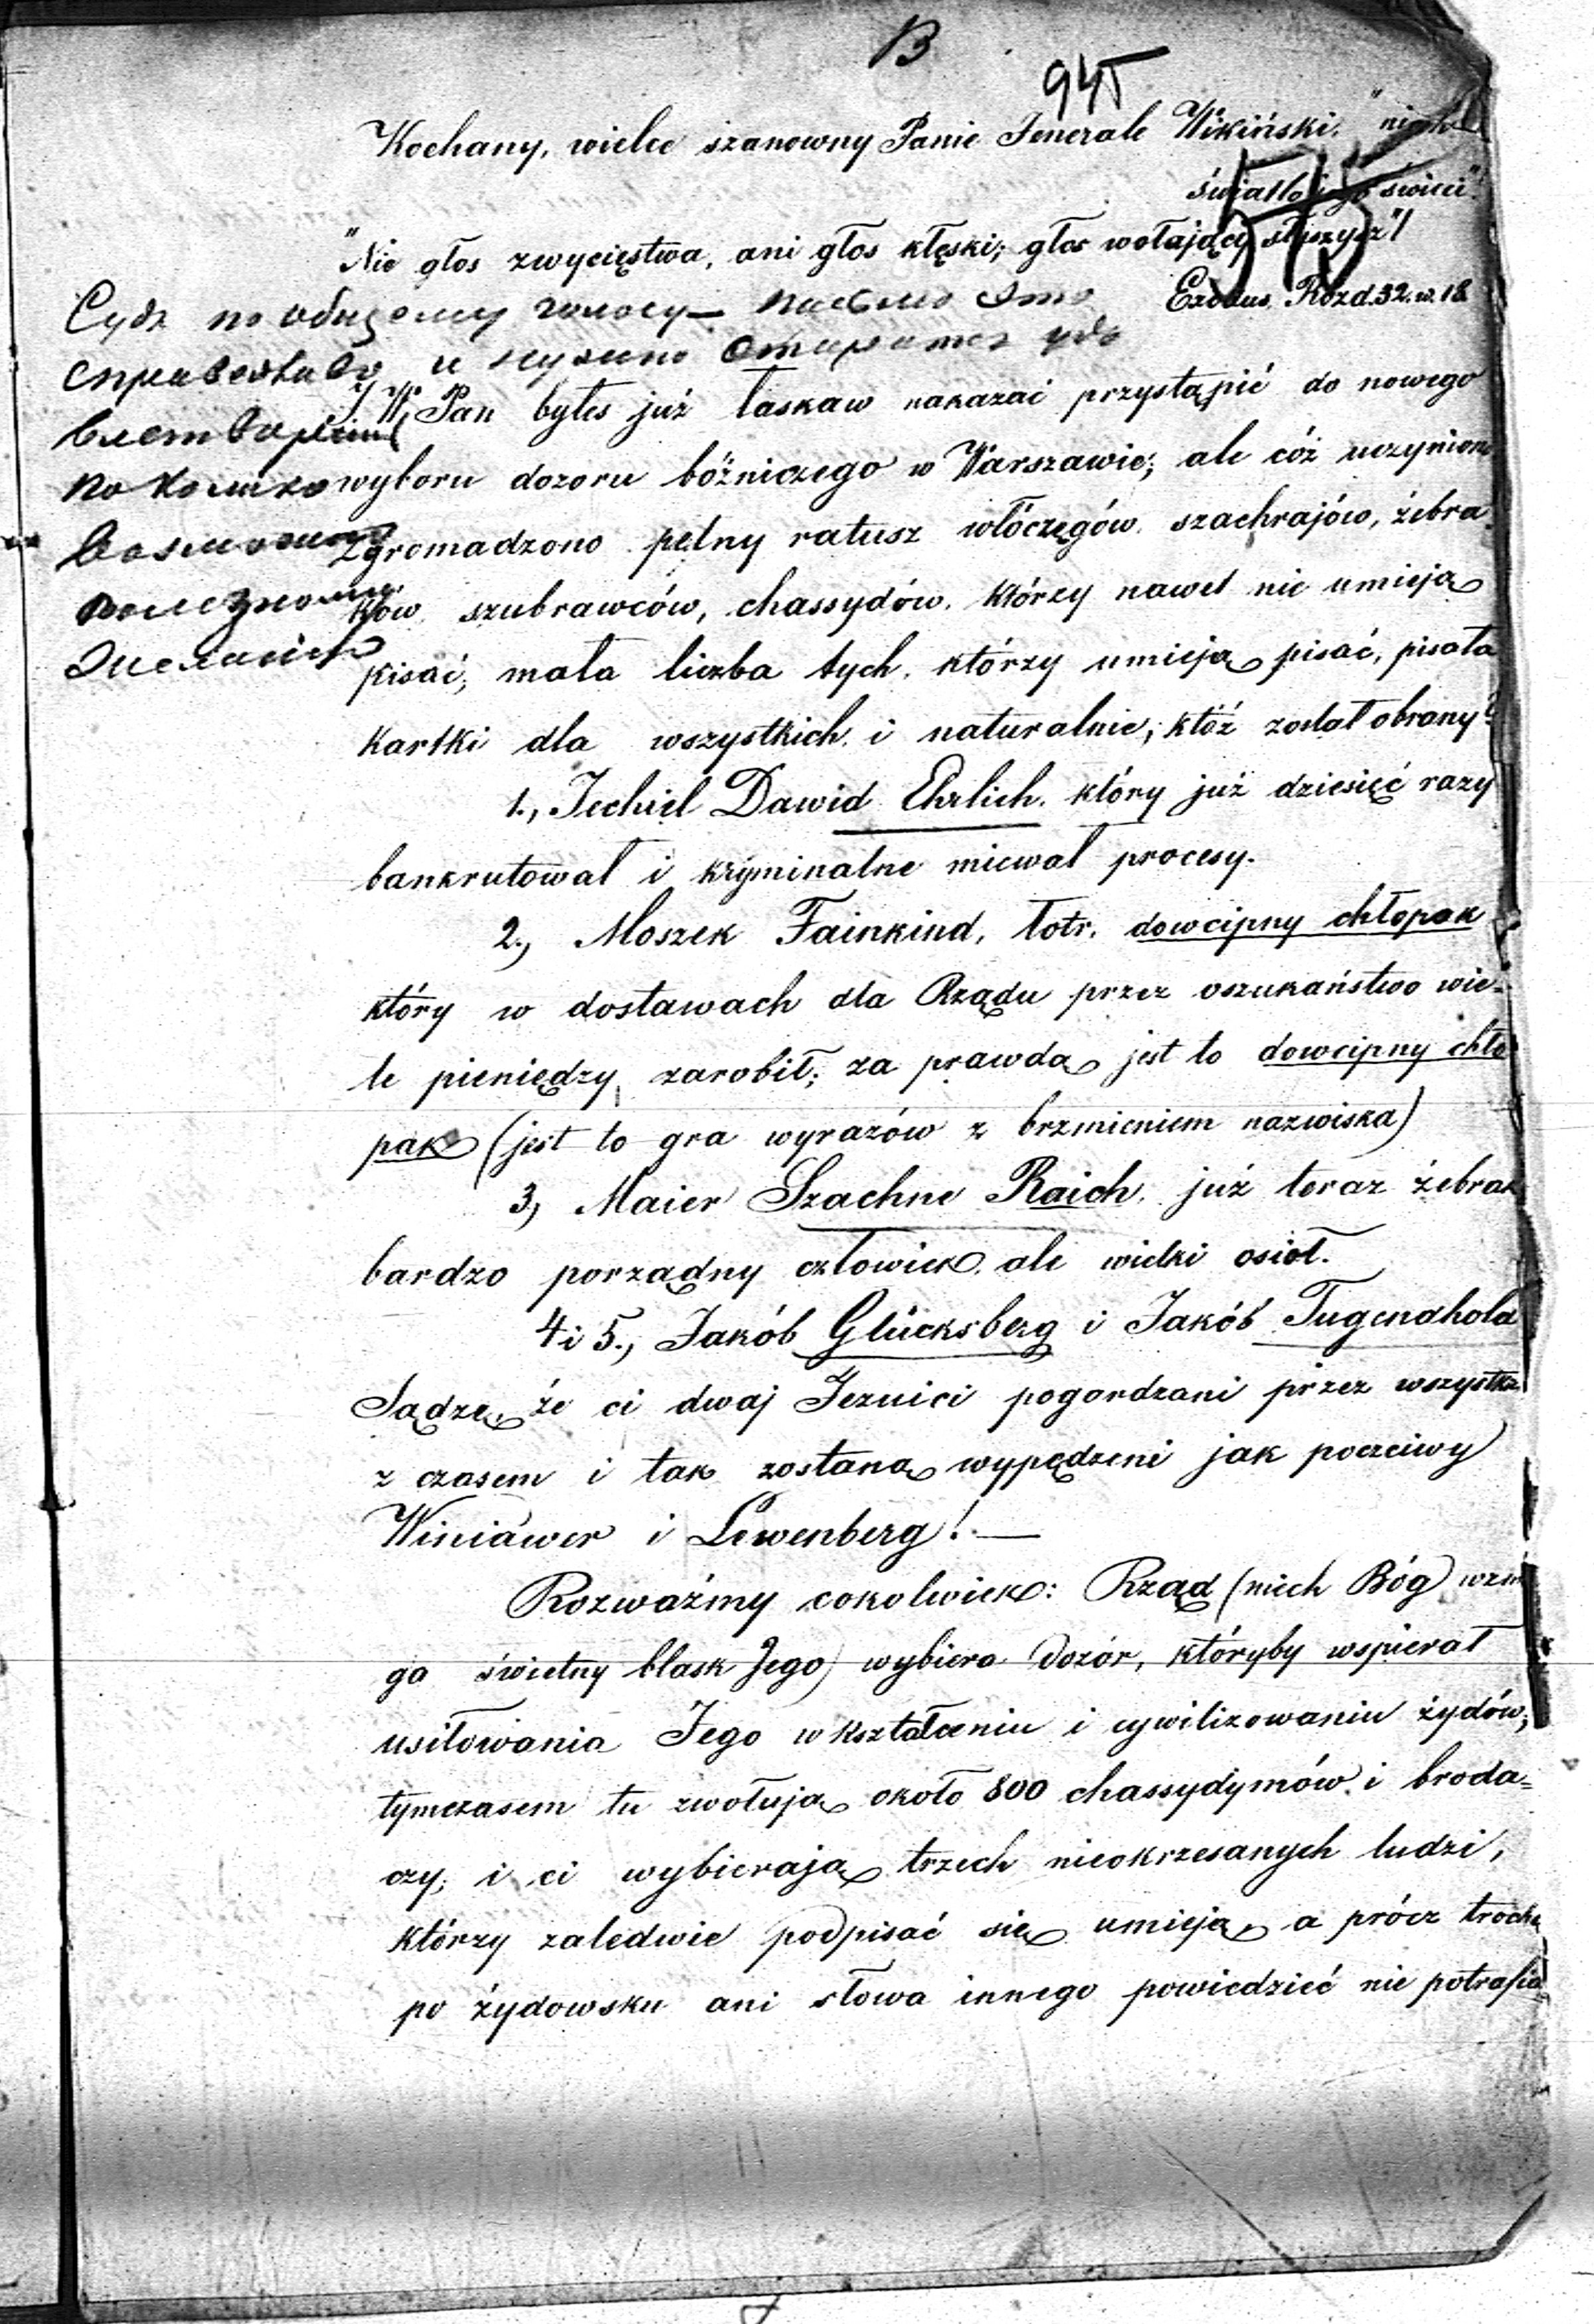 B
945
Kochany, wielce szanowny Panie Jenerale Wikiński, "niech
światło jego świeci"!
"Nie głos zwycięstwa, ani głos klęski; głos wołający słyszysz"!
Exodus Rozd. 32. w. 18
Судя по общему голосу — письмо это
справедливо и нужно стараться
J W Pan byłeś już łaskaw nakazać przystąpić do nowego
wyboru dozoru bóźniczego w Warszawie; ale cóż uczyniono
по
Zgromadzono pełny ratusz włóczęgów, szachrajów, żebra-
ków, szubrawców, chassydów, którzy nawet nie umieją
pisać; mała liczba tych, którzy umieją pisać, pisała
kartki dla wszystkich, i naturalnie; któż został obrany?
1., Jechiel Dawid Ehrlich, który już dziesięć razy
bankrutował i kryminalne miewał procesy.
2., Moszek Fainkind, łotr, dowcipny chłopak
który w dostawach dla Rządu przez oszukaństwo wie-
le pieniędzy zarobił; za prawdą jest to dowcipny chło
pak (jest to gra wyrazów z brzmieniem nazwiska)
3, Maier Szachne Raich, już teraz żebrak
bardzo porządny człowiek, ale wielki osioł.
4 i 5., Jakób Glücksberg i Jakób Tugendhold
Sądzę, że ci dwaj Jezuici pogardzani przez wszystkich
z czasem i tak zostaną wypędzeni jak poczciwy
Winiawer i Lewenberg! —
Rozważmy cokolwiek: Rząd (niech Bóg wzmo
ga świetny blask Jego) wybiera Dozór, któryby wspierał
usiłowania Jego w kształceniu i cywilizowaniu żydów;
tymczasem tu zwołują około 800 chassydymów i broda=
czy; i ci wybierają trzech nieokrzesanych ludzi,
którzy zaledwie podpisać się umieją a prócz trochę
po żydowsku ani słowa innego powiedzieć nie potrafią